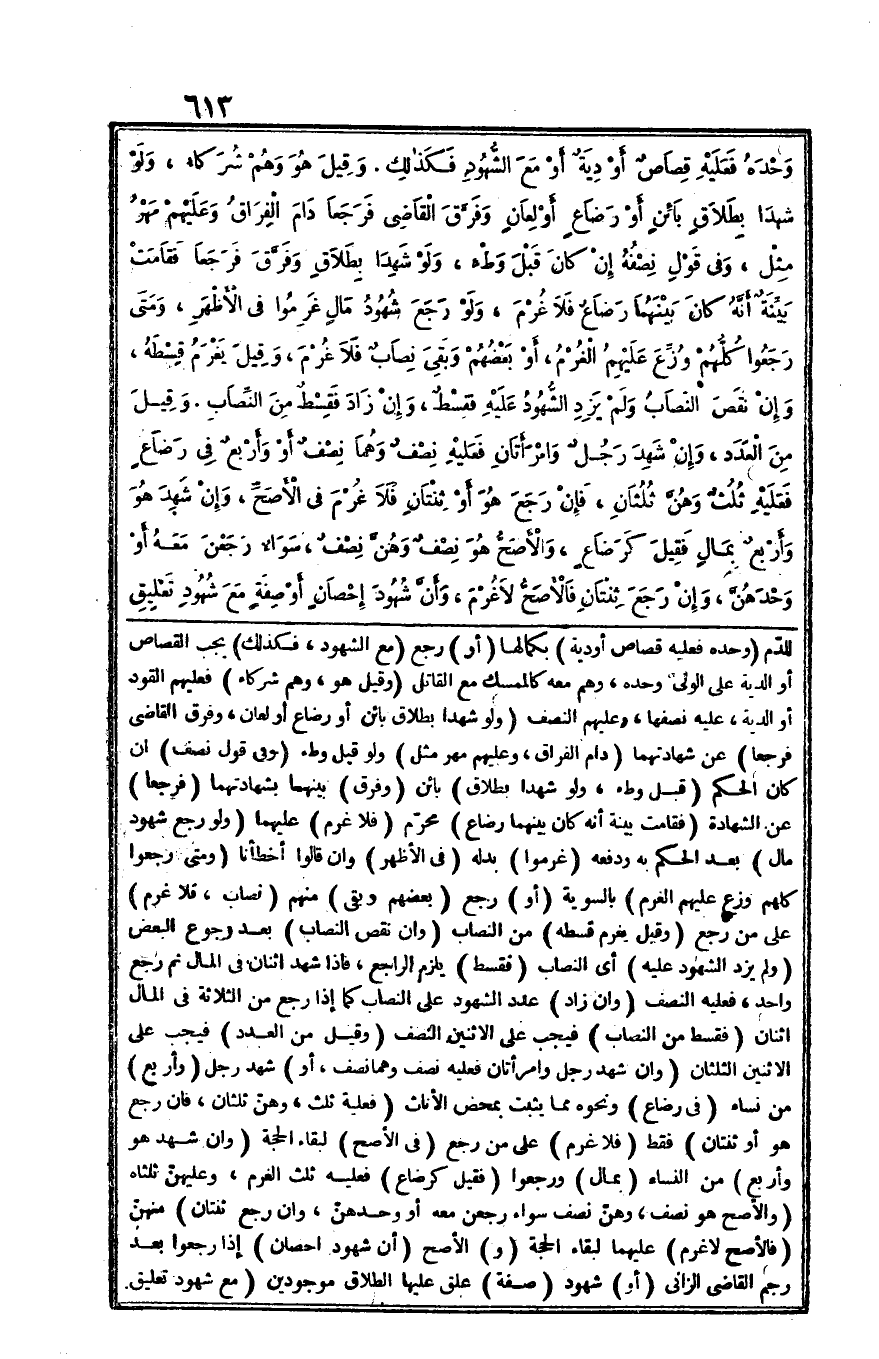 ٦١٣
وَحْدَهُ فَعَلَيْهِ قِصَاصٌ أَوْ دِيَةٌ أَوْ مَعَ الشُّهُودِ فَكَذٰلِكَ . وَقِيلَ هُوَ وَهُمْ شُرَكَاءُ ، وَلَوْ
شَهِدَا بِطَلَاقٍ بَائِنٍ أَوْ رَضَاعٍ أَوْ لِعَانٍ وَفَرَّقَ الْقَاضِى فَرَجَعَا دَامَ الْفِرَاقُ وَعَلَيْهِمْ مَهْرُ
مِثْلٍ ، وَفِى قَوْلٍ نِصْفُهُ إِنْ كَانَ قَبْلَ وَطْءٍ ، وَلَوْ شَهِدَا بِطَلَاقٍ وَفَرَّقَ فَرَجَعَا فَقَامَتْ
بَيِّنَةٌ أَنَّهُ كَانَ بَيْنَهُمَا رَضَاعٌ فَلَا غُرْمَ ، وَلَوْ رَجَعَ شُهُودُ مَالٍ غَرِمُوا فِى الْأَظْهَرِ ، وَمَتَى
رَجَعُوا كُلُّهُمْ وُزِّعَ عَلَيْهِمُ الْغُرْمُ ، أَوْ بَعْضُهُمْ وَبَقِىَ نِصَابٌ فَلَا غُرْمَ ، وَقِيلَ يَغْرَمُ قِسْطَهُ ،
وَإِنْ نَقَصَ النِّصَابُ وَلَمْ يَزِدِ الشُّهُودُ عَلَيْهِ فَقِسْطٌ ، وَإِنْ زَادَ فَقِسْطٌ مِنَ النِّصَابِ . وَقِيلَ
مِنَ الْعَدَدِ ، وَإِنْ شَهِدَ رَجُلٌ وَامْرَأَتَانِ فَعَلَيْهِ نِصْفٌ وَهُمَا نِصْفٌ أَوْ وَأَرْبَعٌ فِى رَضَاعٍ
فَعَلَيْهِ ثُلُثٌ وَهُنَّ ثُلُثَانِ ، فَإِنْ رَجَعَ هُوَ أَوْ ثِنْتَانِ فَلَا غُرْمَ فِى الْأَصَحِّ ، وَإِنْ شَهِدَ هُوَ
وَأَرْبَعٌ بِمَالٍ فَقِيلَ كَرَضَاعٍ ، وَالْأَصَحُّ هُوَ نِصْفٌ وَهُنَّ نِصْفٌ ، سَوَاءٌ رَجَعْنَ مَعَهُ أَوْ
وَحْدَهُنَّ ، وَإِنْ رَجَعَ ثِنْتَانِ فَالْأَصَحُّ لَا غُرْمَ ، وَأَنَّ شُهُودَ إِحْصَانٍ أَوْ صِفَةٍ مَعَ شُهُودِ تَعْلِيقِ
للدّم (وحده فعليه قصاص أو دية) بكمالها (أو) رجع (مع الشهود ، فكذلك) يجب القصاص
أو الدية على الولىّ وحده ، وهم معه كالممسك مع القاتل (وقيل هو ، وهم شركاء) فعليهم القود
أو الدية ، عليه نصفها ، وعليهم النصف (ولو شهدا بطلاق بائن أو رضاع أو لعان ، وفرق القاضى
فرجعا) عن شهادتهما (دام الفراق ، وعليهم مهر مثل) ولو قبل وطء (وفى قول نصف) ان
كان الحكم (قبل وطء ، ولو شهدا بطلاق) بائن (وفرق) بينهما بشهادتهما (فرجعا)
عن الشهادة (فقامت بينة أنه كان بينهما رضاع) محرّم (فلا غرم) عليهما (ولو رجع شهود
مال) بعد الحكم به ودفعه (غرموا) بدله (فى الأظهر) وان قالوا أخطأنا (ومتى رجعوا
كلهم وزع عليهم الغرم) بالسوية (أو) رجع (بعضهم وبقى) منهم (نصاب ، فلا غرم)
على من رجع (وقيل يغرم قسطه) من النصاب (وان نقص النصاب) بعد رجوع البعض
(ولم يزد الشهود عليه) أى النصاب (فقسط) يلزم الراجع ، فاذا شهد اثنان فى المال ثم رجع
واحد ، فعليه النصف (وان زاد) عدد الشهود على النصاب كما إذا رجع من الثلاثة فى المال
اثنان (فقسط من النصاب) فيجب على الاثنين النصف (وقيل من العدد) فيجب على
الاثنين الثلثان (وان شهد رجل وامرأتان فعليه نصف وهما نصف ، أو) شهد رجل (وأربع)
من نساء (فى رضاع) ونحوه مما يثبت بمحض الأناث (فعلية ثلث ، وهنّ ثلثان ، فان رجع
هو أو ثنتان) فقط (فلا غرم) على من رجع (فى الأصح) لبقاء الحجة (وان شهد هو
وأربع) من النساء (بمال) ورجعوا (فقيل كرضاع) فعليه ثلث الغرم ، وعليهنّ ثلثاه
(والأصح هو نصف ، وهنّ نصف سواء رجعن معه أو وحدهنّ ، وان رجع ثنتان) منهنّ
(فالأصح لا غرم) عليهما لبقاء الحجة (و) الأصح (أن شهود احصان) إذا رجعوا بعد
رجم القاضى الزانى (أو) شهود (صفة) علق عليها الطلاق موجودين (مع شهود تعليق.